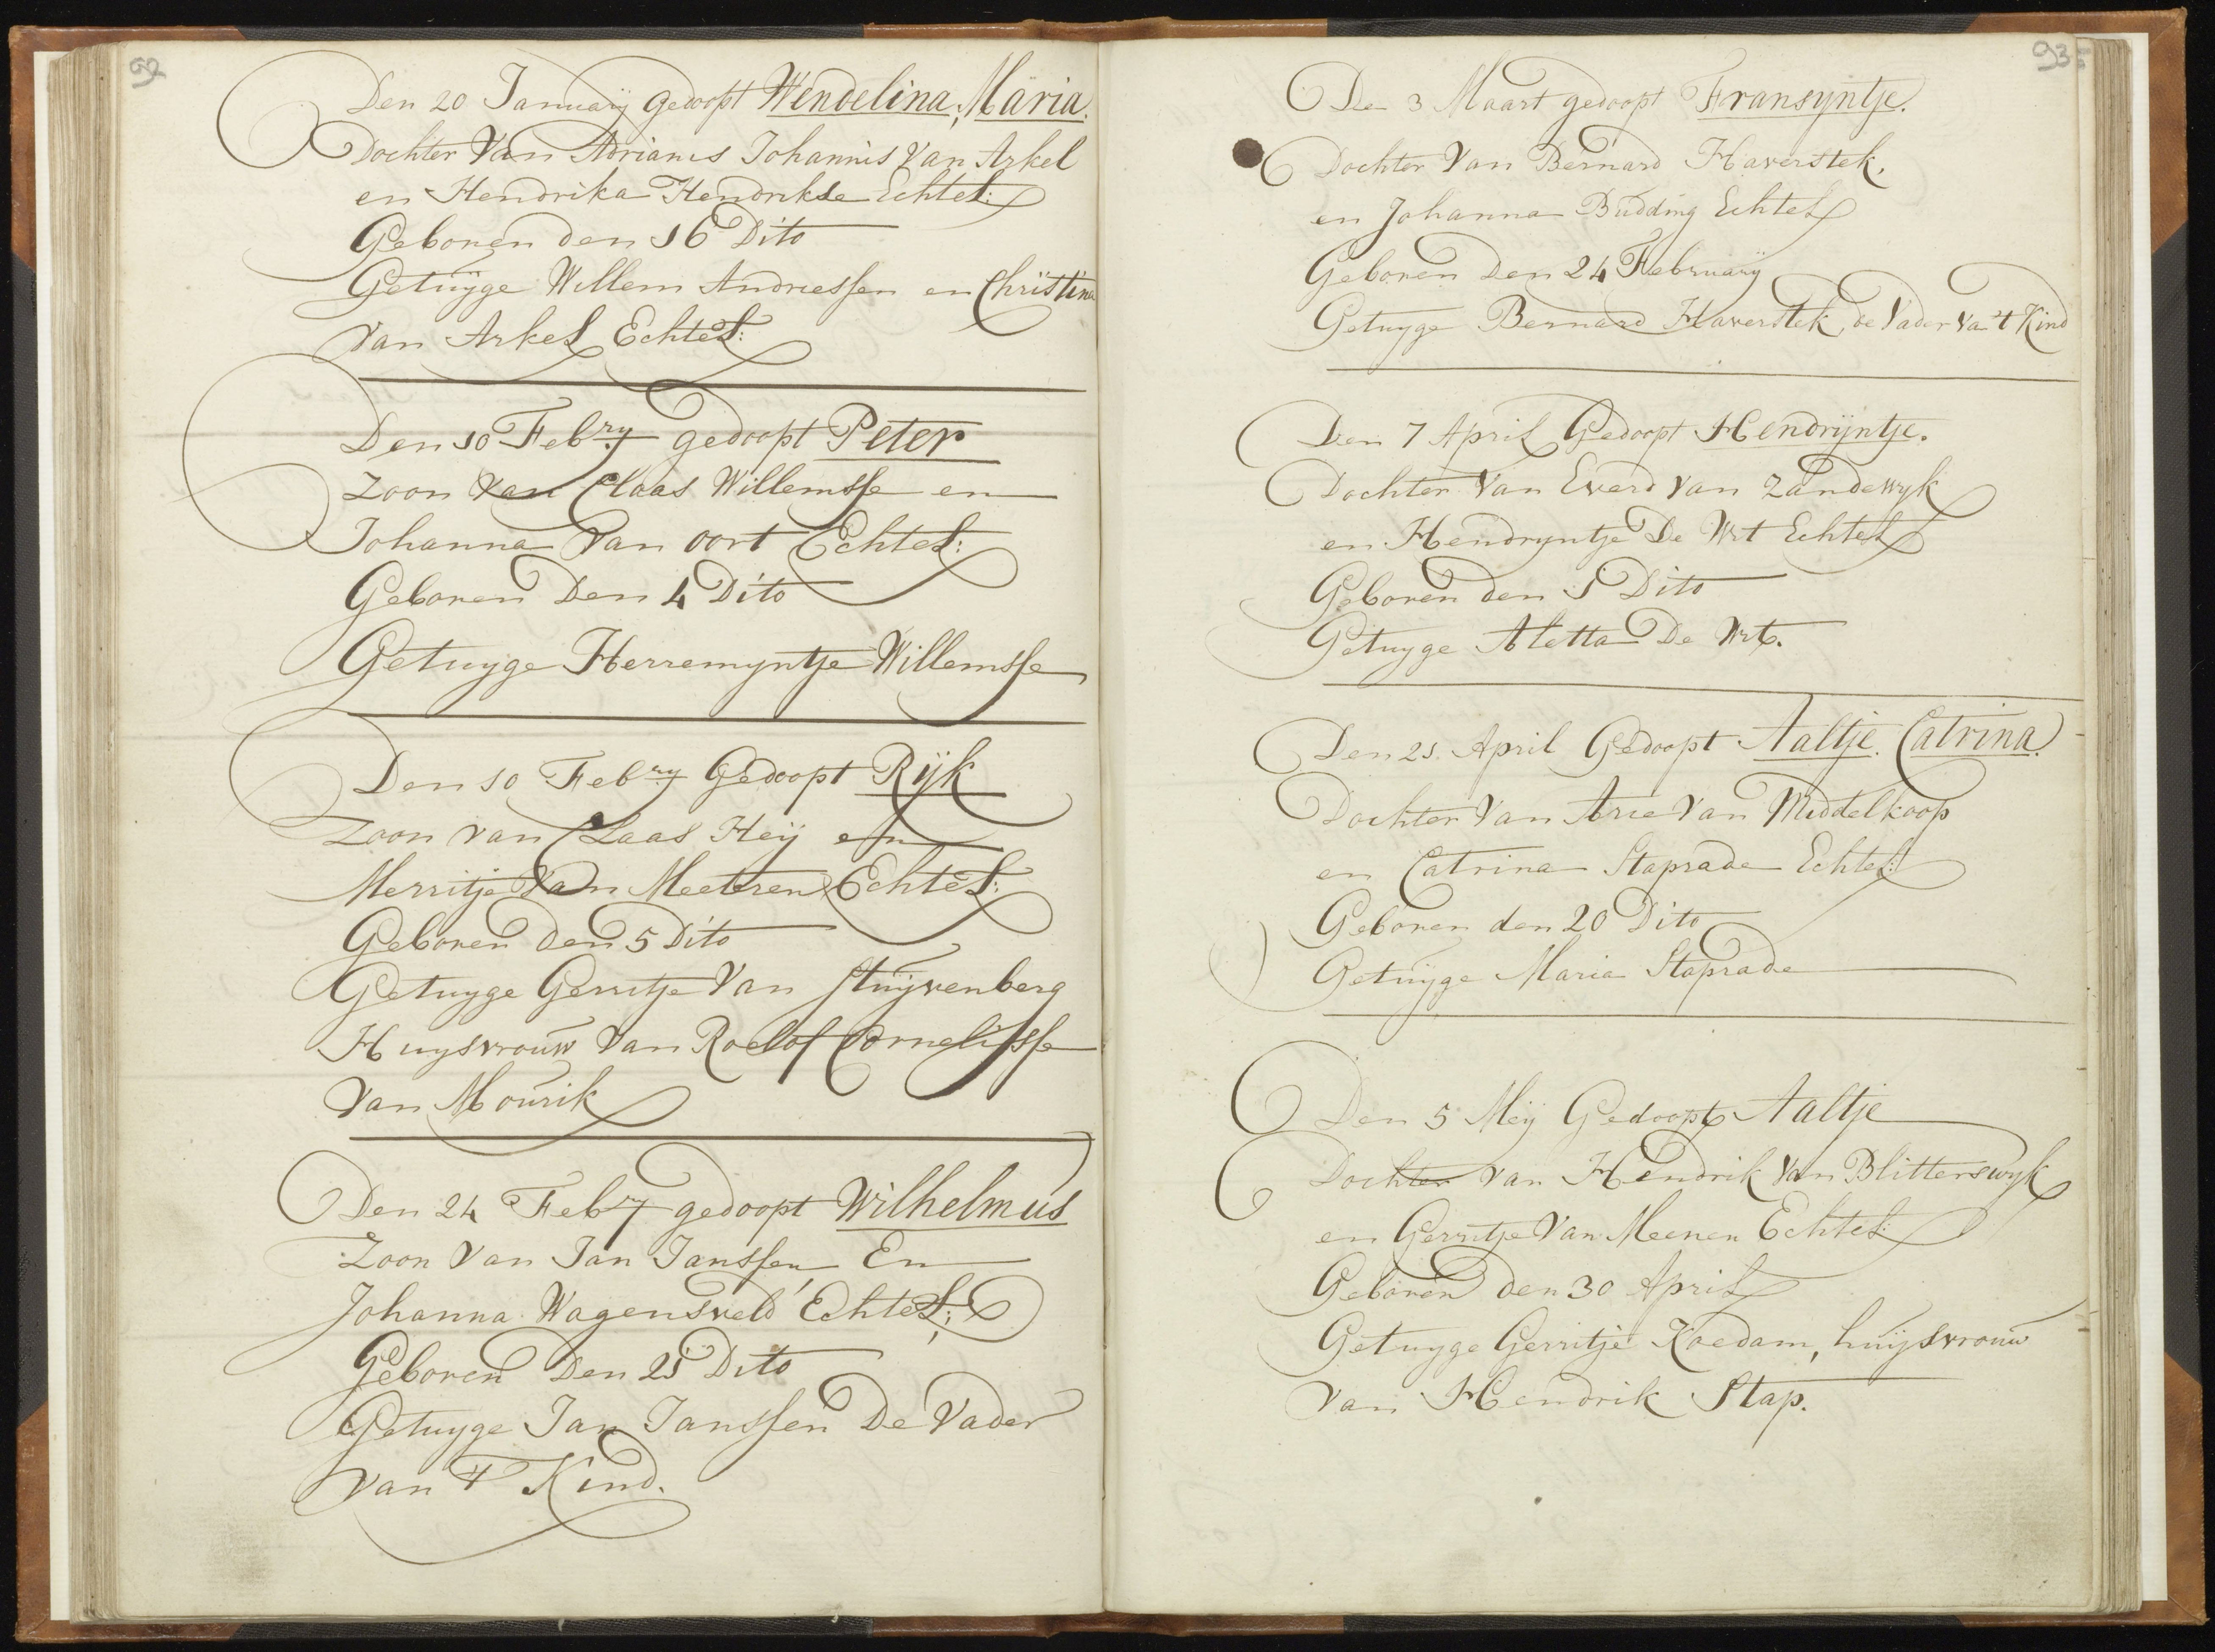 92
Den 20 Januarij gedoopt Wendelina, Maria.
Dochter Van Adrianis Johannis Van Arkel
en Hendrika Hendrikse Echtel:
Geboren den 16 Dito
Getuijge Willem Andriessen en Christina
Van Arkel Echtel:
Den 10 Febry gedoopt Peter
Zoon Van Claas Willemsse en
Johanna Van oort Echtel:
Geboren Den 4 Dito
Getuyge Herremyntje Willemsse
Den 10 Febry Gedoopt Rijk
Zoon van Claas Heij en
Merritje Van Meeteren Echtel:
Geboren den 5 Dito
Getuyge Gerritje Van Stuijvenberg
Huysvrouw Van Roelof Cornelisse
Van Mourik
Den 24 Febry gedoopt Wilhelmus
Zoon Van Jan Janssen, En
Johanna Wagensveld Echtel:
Geboren Den 21 Dito
Getuyge Jan Janssen De Vader
Van 't Kind.
93
Den 3 Maart gedoopt Fransyntje.
Dochter Van Bernard Haverstek,
en Johanna Budding Echtel
Geboren Den 24 February
Getuyge Bernard Haverstek, de Vader Van 't Kind
Den 7 April Gedoopt Hendrijntje.
Dochter Van Everd Van Zandewyk
en Hendryntje De Wit Echtel
Geboren den 1 Dito
Getuyge Aletta De Wit.
Den 21 April Gedoopt Aaltje. Catrina.
Dochter Van Arie Van Middelkoop
en Catrina Staprade Echtel:
Geboren den 20 Dito
Getuijge Maria Staprade
Den 5 Meij Gedoopt Aaltje
Dochter van Hendrik Van Blitterswyk
en Gerritje Van Meenen Echtel:
Geboren den 30 April
Getuyge Gerritje Koedam, huijsvrouw
Van Hendrik Stap.